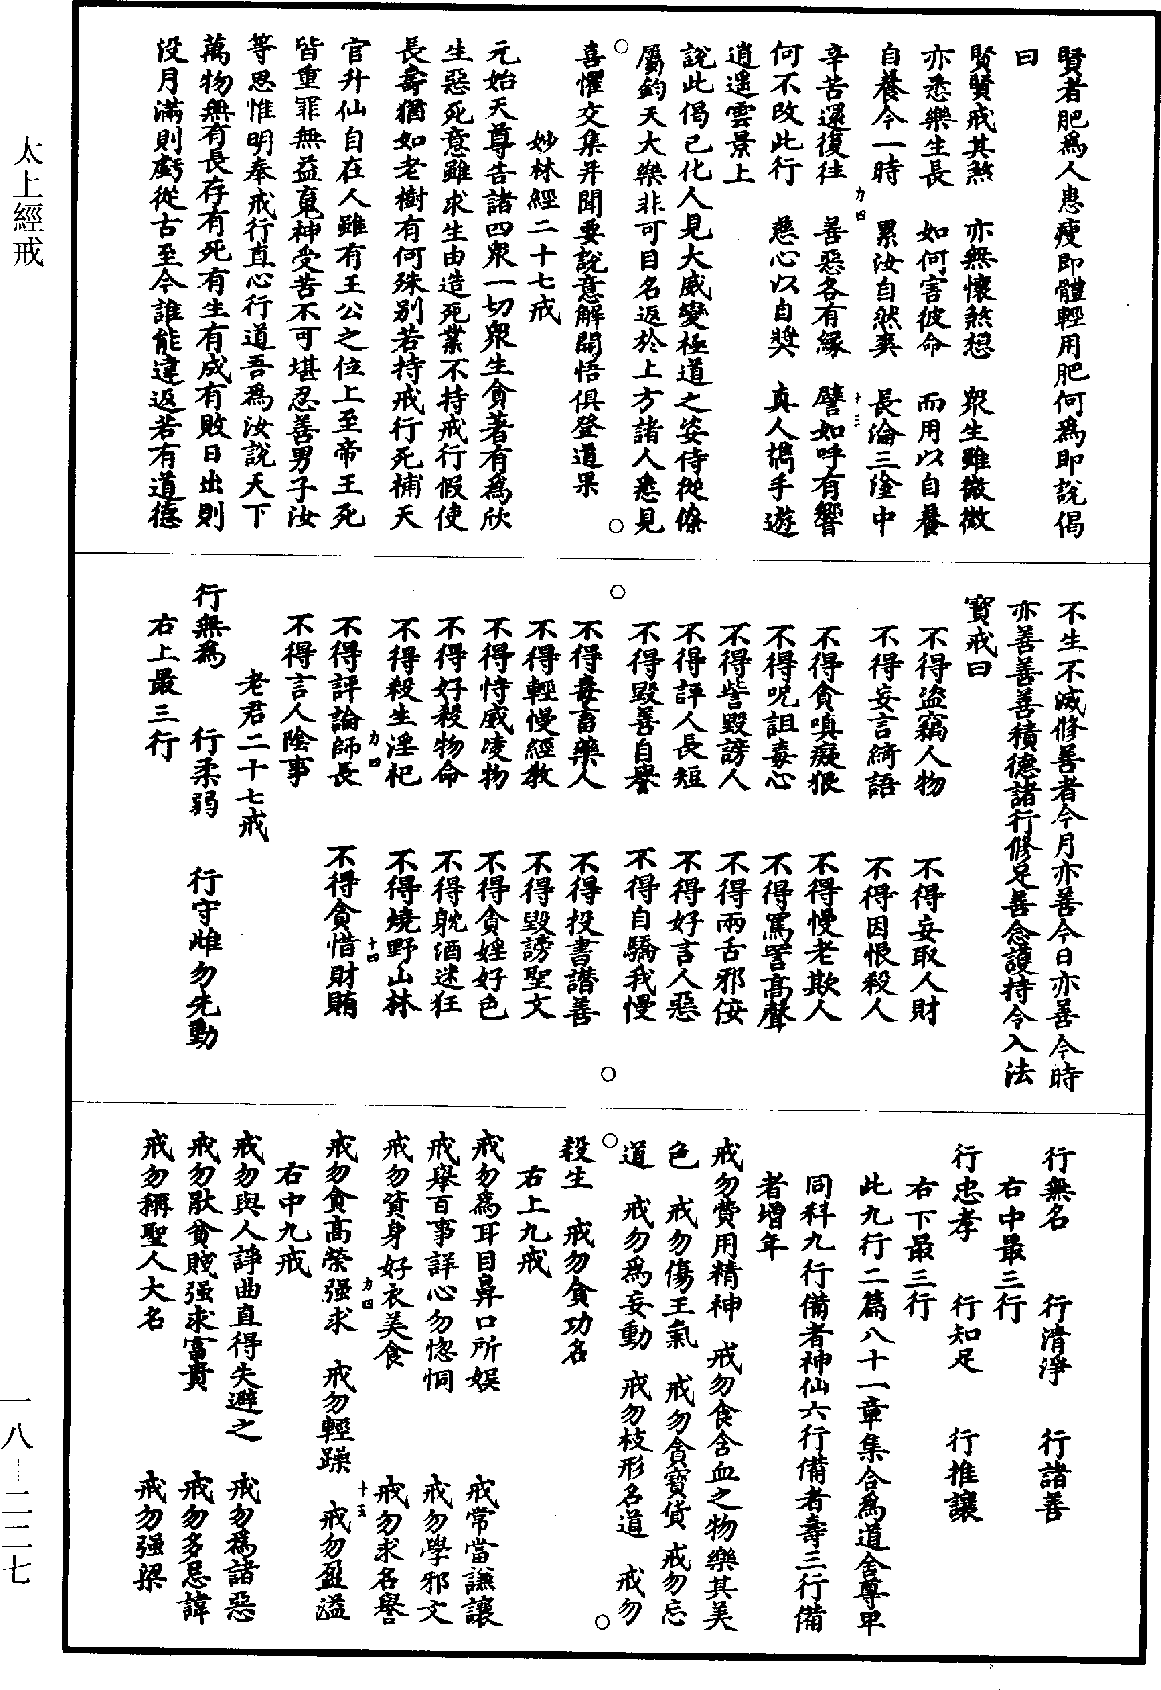 太上經戒
一八—二二七
賢者肥爲人患瘦即體輕用肥何爲即說偈
曰
賢賢戒其煞　亦無懷煞想　衆生雖微微
亦悉樂生長　如何害彼命　而用以自養
自養今一時　累汝自然喪　長淪三塗中
辛苦還復往　善惡各有緣　譬如呼有響
力四　十三
何不改此行　慈心以自獎　真人攜手遊
逍遥雲景上
說此偈已化人見大威變極道之姿侍從僚
屬鈞天大樂非可目名返於上方諸人悉見
喜懼交集并聞要說意解開悟俱登道果
妙林經二十七戒
元始天尊告諸四衆一切衆生貪著有爲欣
生惡死意雖求生由造死業不持戒行假使
長壽猶如老樹有何殊别若持戒行死補天
官升仙自在人雖有王公之位上至帝王死
皆重罪無益䰟神受苦不可堪忍善男子汝
等思惟明奉戒行直心行道吾爲汝說天下
萬物無有長存有死有生有成有敗日出則
没月滿則虧從古至今誰能違返若有道德
不生不滅修善者今月亦善今日亦善今時
亦善善善積德諸行修足善念護持令入法
寳戒曰
不得盜竊人物　不得妄取人財
不得妄言綺語　不得因恨殺人
不得貪嗔癡狠　不得慢老欺人
不得呪詛毒心　不得罵詈高聲
不得訾毀謗人　不得兩舌邪佞
不得評人長短　不得好言人惡
不得毀善自譽　不得自驕我慢
不得毒畜藥人　不得投書譖善
不得輕慢經教　不得毀謗聖文
不得恃威凌物　不得貪婬好色
不得好殺物命　不得躭酒迷狂
不得殺生淫祀　不得燒野山林
力四　十四
不得評論師長　不得貪惜財賄
不得言人陰事
老君二十七戒
行無爲　行柔弱　行守雌勿先動
右上最三行
行無名　行清淨　行諸善
右中最三行
行忠孝　行知足　行推讓
右下最三行
此九行二篇八十一章集合爲道舍尊卑
同科九行備者神仙六行備者壽三行備
者增年
戒勿費用精神　戒勿食含血之物樂其美
色　戒勿傷王氣　戒勿貪寳貨　戒勿忘
道　戒勿爲妄動　戒勿枝形名道　戒勿
殺生　戒勿貪功名
右上九戒
戒勿爲耳目鼻口所娱　戒常當謙讓
戒舉百事詳心勿惚恫　戒勿學邪文
戒勿資身好衣美食　戒勿求名譽
力四　十五
戒勿貪高榮强求　戒勿輕躁　戒勿盈溢
右中九戒
戒勿與人諍曲直得失避之　戒勿爲諸惡
戒勿猒貧賤强求富貴　戒勿多忌諱
戒勿稱聖人大名　戒勿强梁